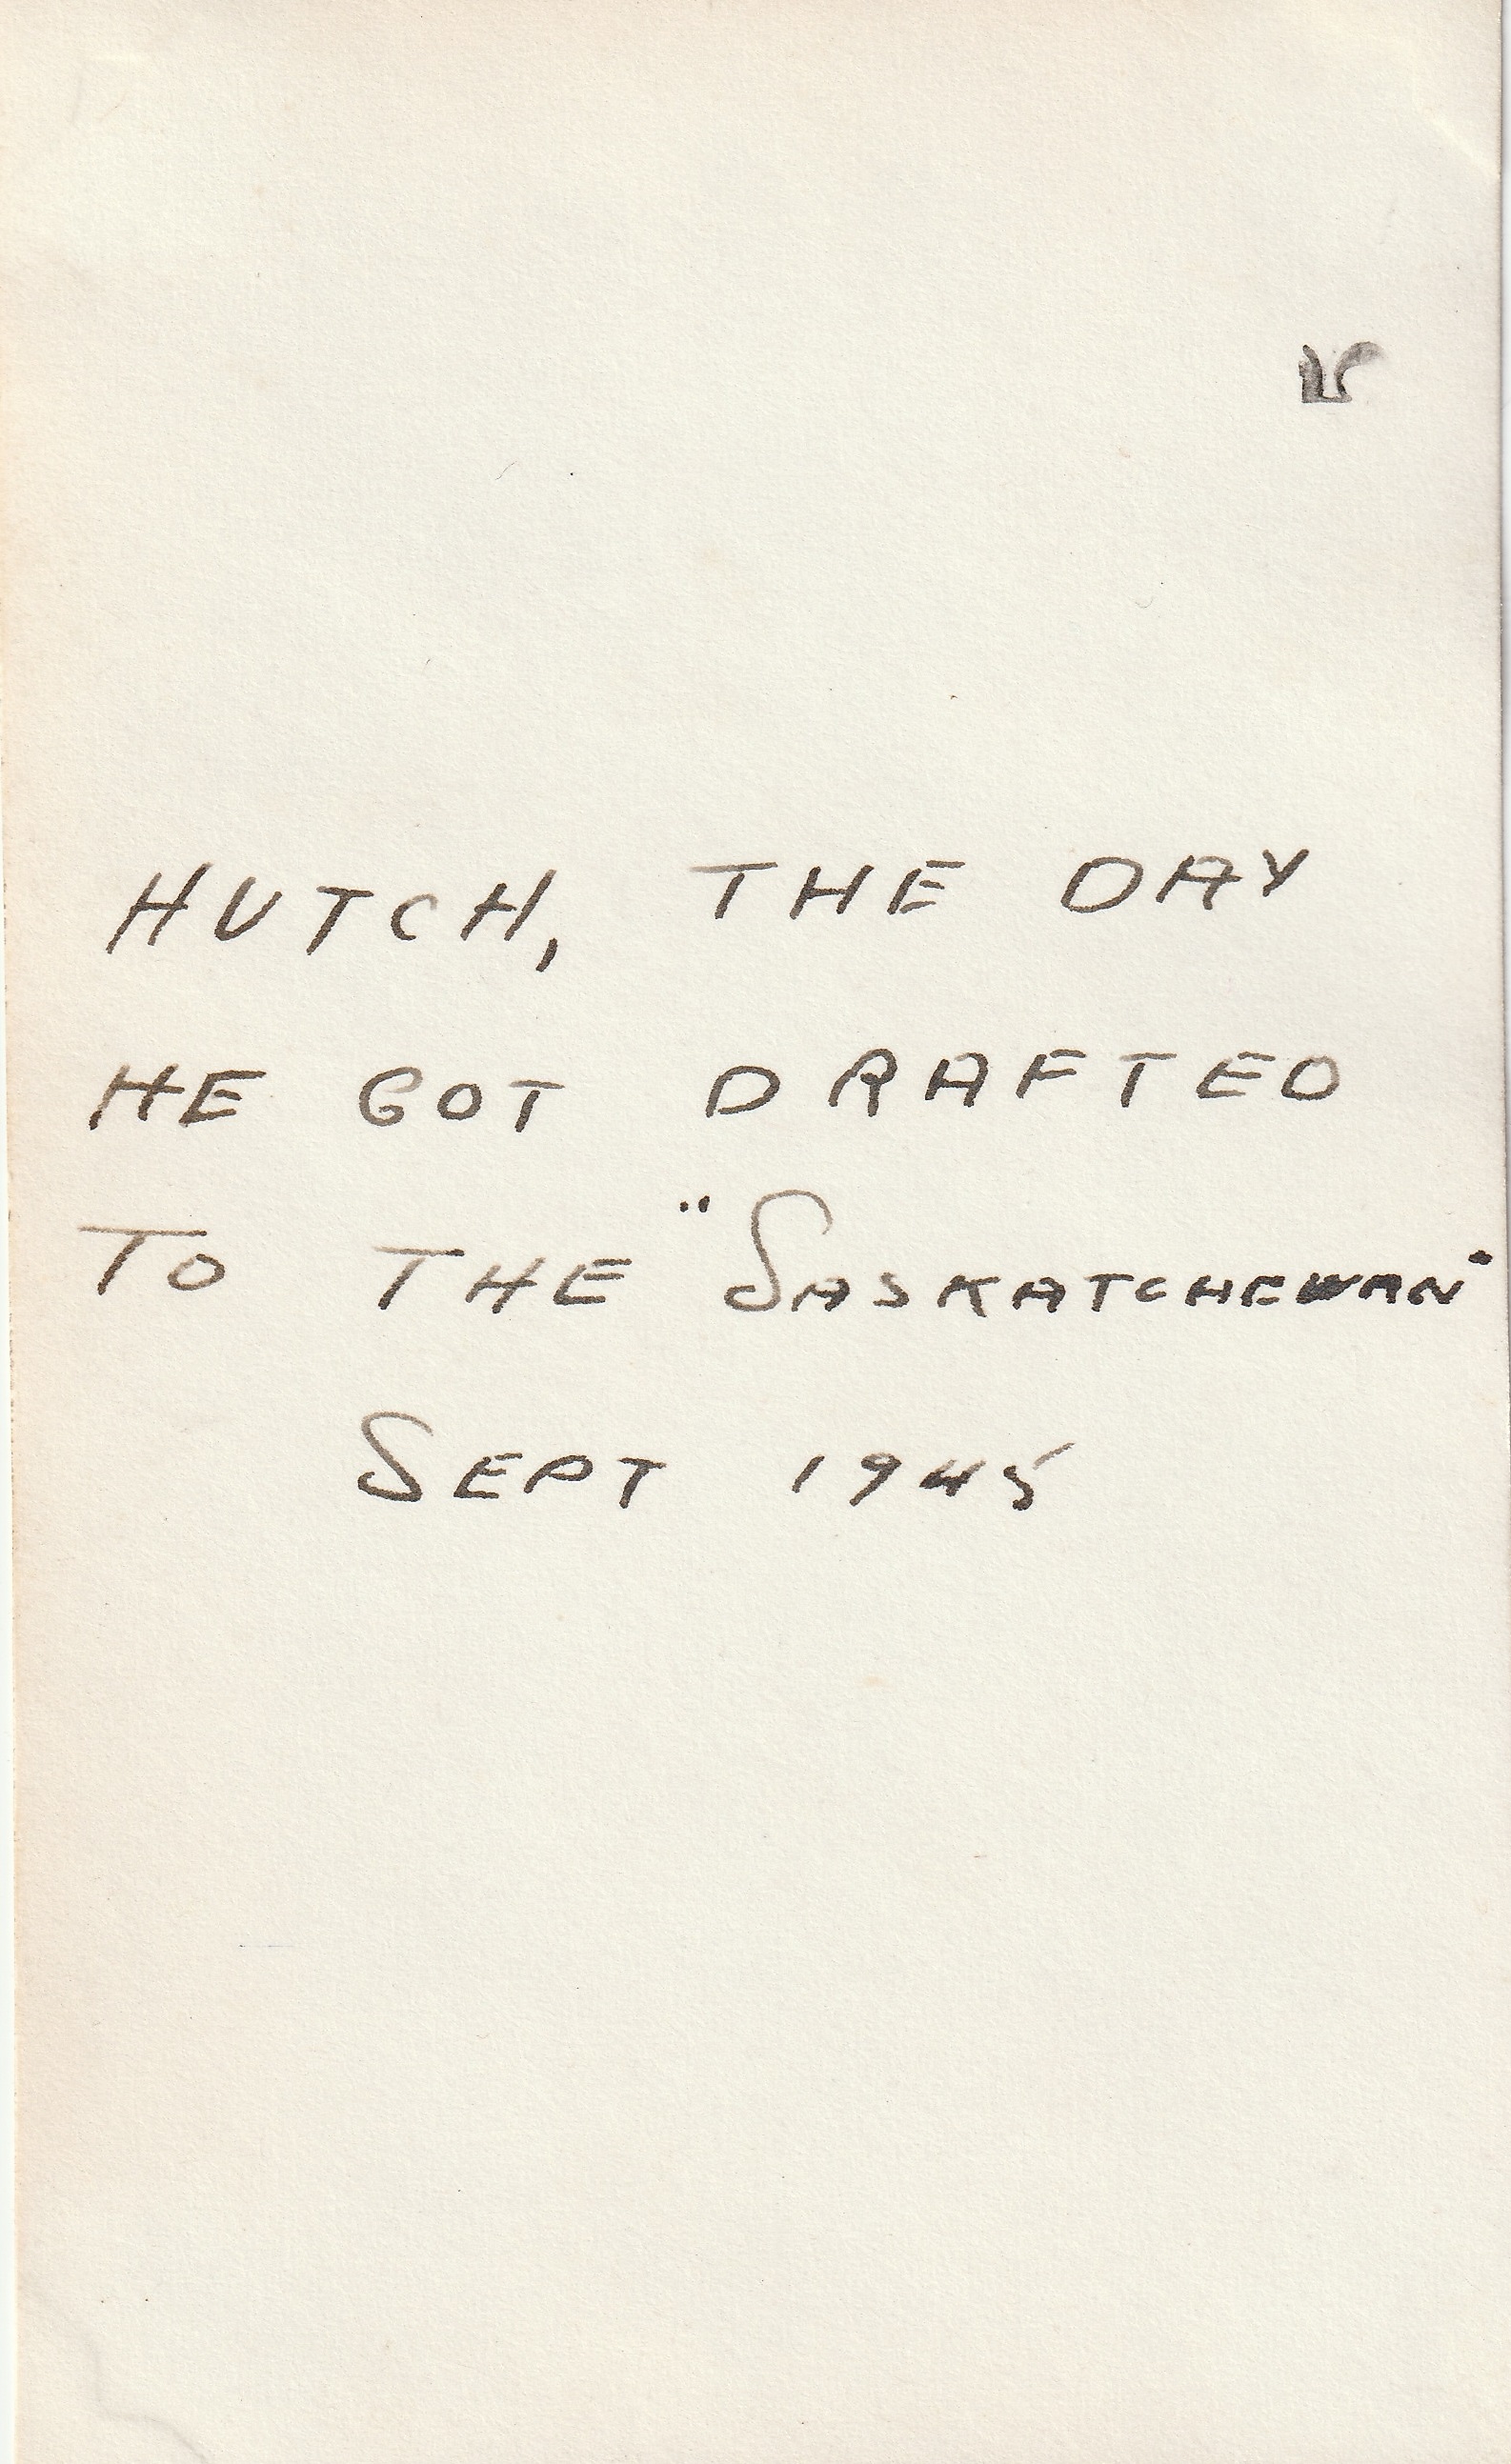 HUTCH, THE DAY
HE GOT DRAFTED
TO THE "SASKATCHEWAN"
SEPT 1945